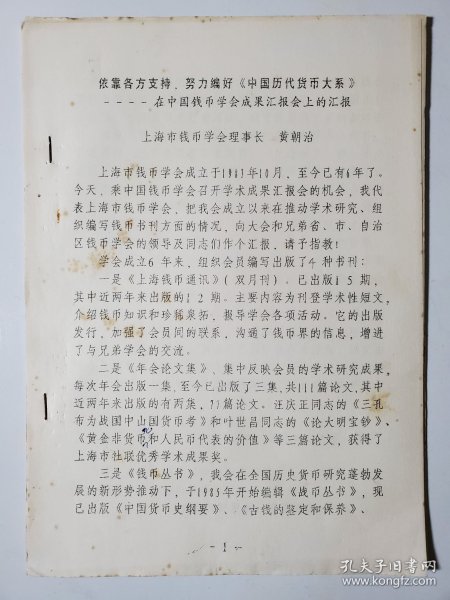 依靠各方支持，努力编好《中国历代货币大系》
----在中国钱币学会成果汇报会上的汇报
上海市钱币学会理事长 黄朝治
上海市钱币学会成立于1983年10月，至今已有6年了。
今天，乘中国钱币学会召开学术成果汇报会的机会，我代
表上海市钱币学会，把我会成立以来在推动学术研究、组
织编写钱币书刊方面的情况，向大会和兄弟省、市、自治
区钱币学会的领导及同志们作个汇报，请予指教！
学会成立6年来，组织会员编写出版了4种书刊：
一是《上海钱币通讯》（双月刊）。已出版15期，
其中近两年来出版的12期。主要内容为刊登学术性短文，
介绍钱币知识和珍稀泉拓，报导学会各项活动。它的出版
发行，加强了会员间的联系，沟通了钱币界的信息，增进
了与兄弟学会的交流。
二是《年会论文集》、集中反映会员的学术研究成果，
每次年会出版一集，至今已出版了三集，共111篇论文，其中
近两年来出版的有两集，77篇论文。汪庆正同志的《三孔
布为战国中山国货币考》和叶世昌同志的《论大明宝钞》、
《黄金非货币和人民币代表的价值》等三篇论文，获得了
上海市社联优秀学术成果奖。
三是《钱币丛书》，我会在全国历史货币研究蓬勃
发展的新形势推动下，于1985年开始编辑《战币丛书》，现
已出版《中国货币史纲要》、《古钱的鉴定和保养》、
-1-
孔夫子旧书网
www.kongfz.com